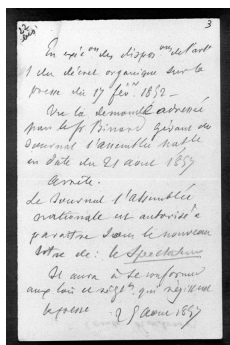 22
bis
3
En exé^on des dispos^ons de l'art
1 du décret organique sur la
presse du 17 fév^r. 1852 –
Vu la demande adressée
par le Sr Gérant du
Journal l'assemblée nat^le
en date du 21 aout 1857
Arrête.
Le Journal l'assemblée
nationale est autorisé à
paraitre sous le nouveau
titre de : le Spectateur
Il aura à se conformer
aux lois et règl^ts qui régissent
la presse
25 aout 1857